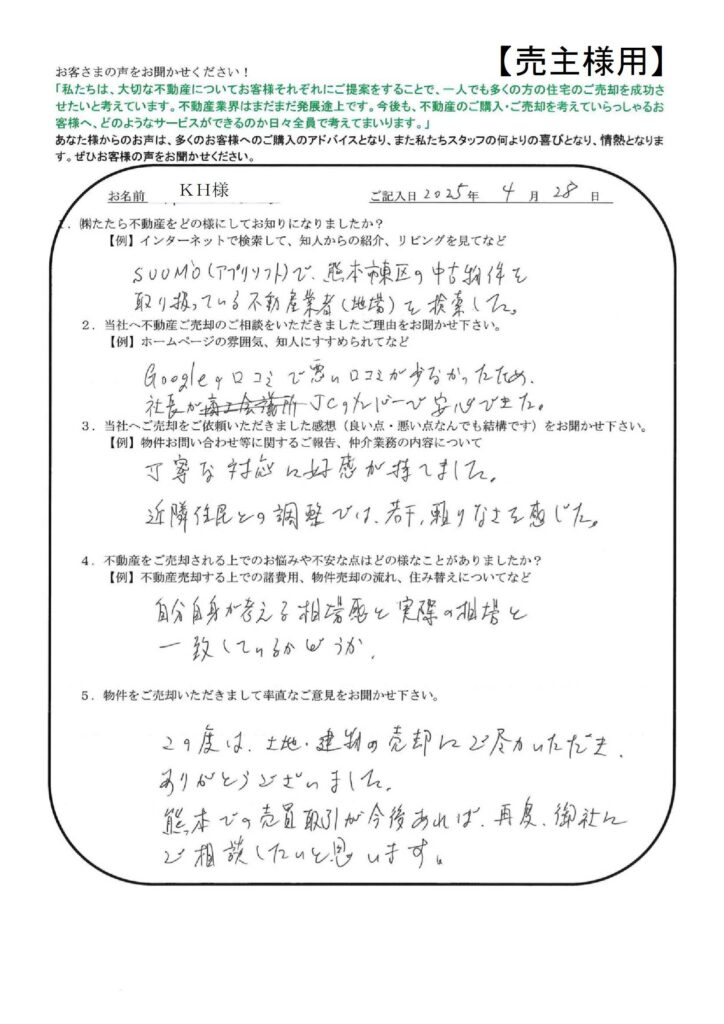 【売主様用】
お客さまの声をお聞かせください！
「私たちは、大切な不動産についてお客様それぞれにご提案をすることで、一人でも多くの方の住宅のご売却を成功さ
せたいと考えています。不動産業界はまだまだ発展途上です。今後も、不動産のご購入・ご売却を考えていらっしゃるお
客様へ、どのようなサービスができるのか日々全員で考えてまいります。」
あなた様からのお声は、多くのお客様へのご購入のアドバイスとなり、また私たちスタッフの何よりの喜びとなり、情熱となりま
す。ぜひお客様の声をお聞かせください。
お名前 KH様 ご記入日 2025年 4 月 28 日
1．㈱たたら不動産をどの様にしてお知りになりましたか？
【例】インターネットで検索して、知人からの紹介、リビングを見てなど
SUUMO(アプリソフト)で、熊本市東区の中古物件を
取り扱っている不動産業者(地場)を検索した。
2．当社へ不動産ご売却のご相談をいただきましたご理由をお聞かせ下さい。
【例】ホームページの雰囲気、知人にすすめられてなど
Googleの口コミで悪い口コミが少なかったため、
社長が JCのメンバーで安心できた。
3．当社へご売却をご依頼いただきました感想（良い点・悪い点なんでも結構です）をお聞かせ下さい。
【例】物件お問い合わせ等に関するご報告、仲介業務の内容について
丁寧な対応に好感が持てました。
近隣住民との調整では、若干、頼りなさを感じた。
4．不動産をご売却される上でのお悩みや不安な点はどの様なことがありましたか？
【例】不動産売却する上での諸費用、物件売却の流れ、住み替えについてなど
自分自身が考える相場感と実際の相場と
一致しているかどうか、
5．物件をご売却いただきまして率直なご意見をお聞かせ下さい。
この度は、土地・建物の売却にご尽力いただき、
ありがとうございました。
熊本での売買取引が今後あれば、再度、御社に
ご相談したいと思います。